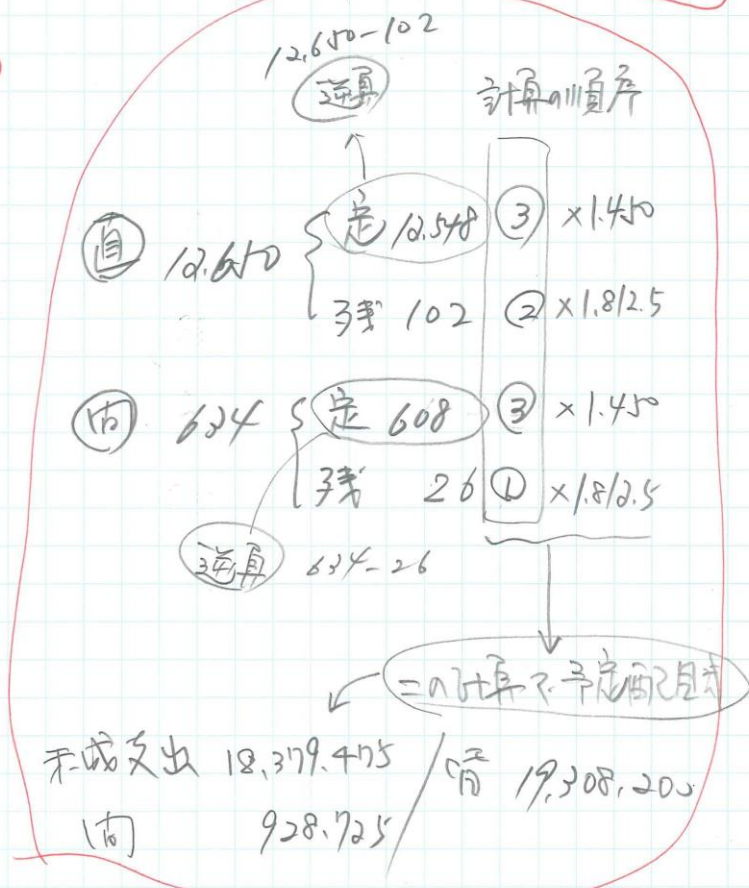 12,650-102
逆算
計算の順序
直 12,650 { 定 12,548 ③ ×1.450
残 102 ② ×1.812.5
内 634 { 定 608 ③ ×1.450
残 26 ① ×1.812.5
逆算 634-26
この計算で予定配
未成支出 18,379,475 / 19,308,200
928,725